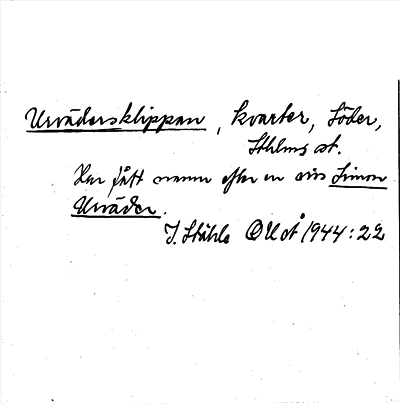 Urvädersklippan, kvarter, Söder,
Sthlms st.
Har fått namn efter en viss Simon
Urväder.
I. Ståhle OUoÅ 1944:22